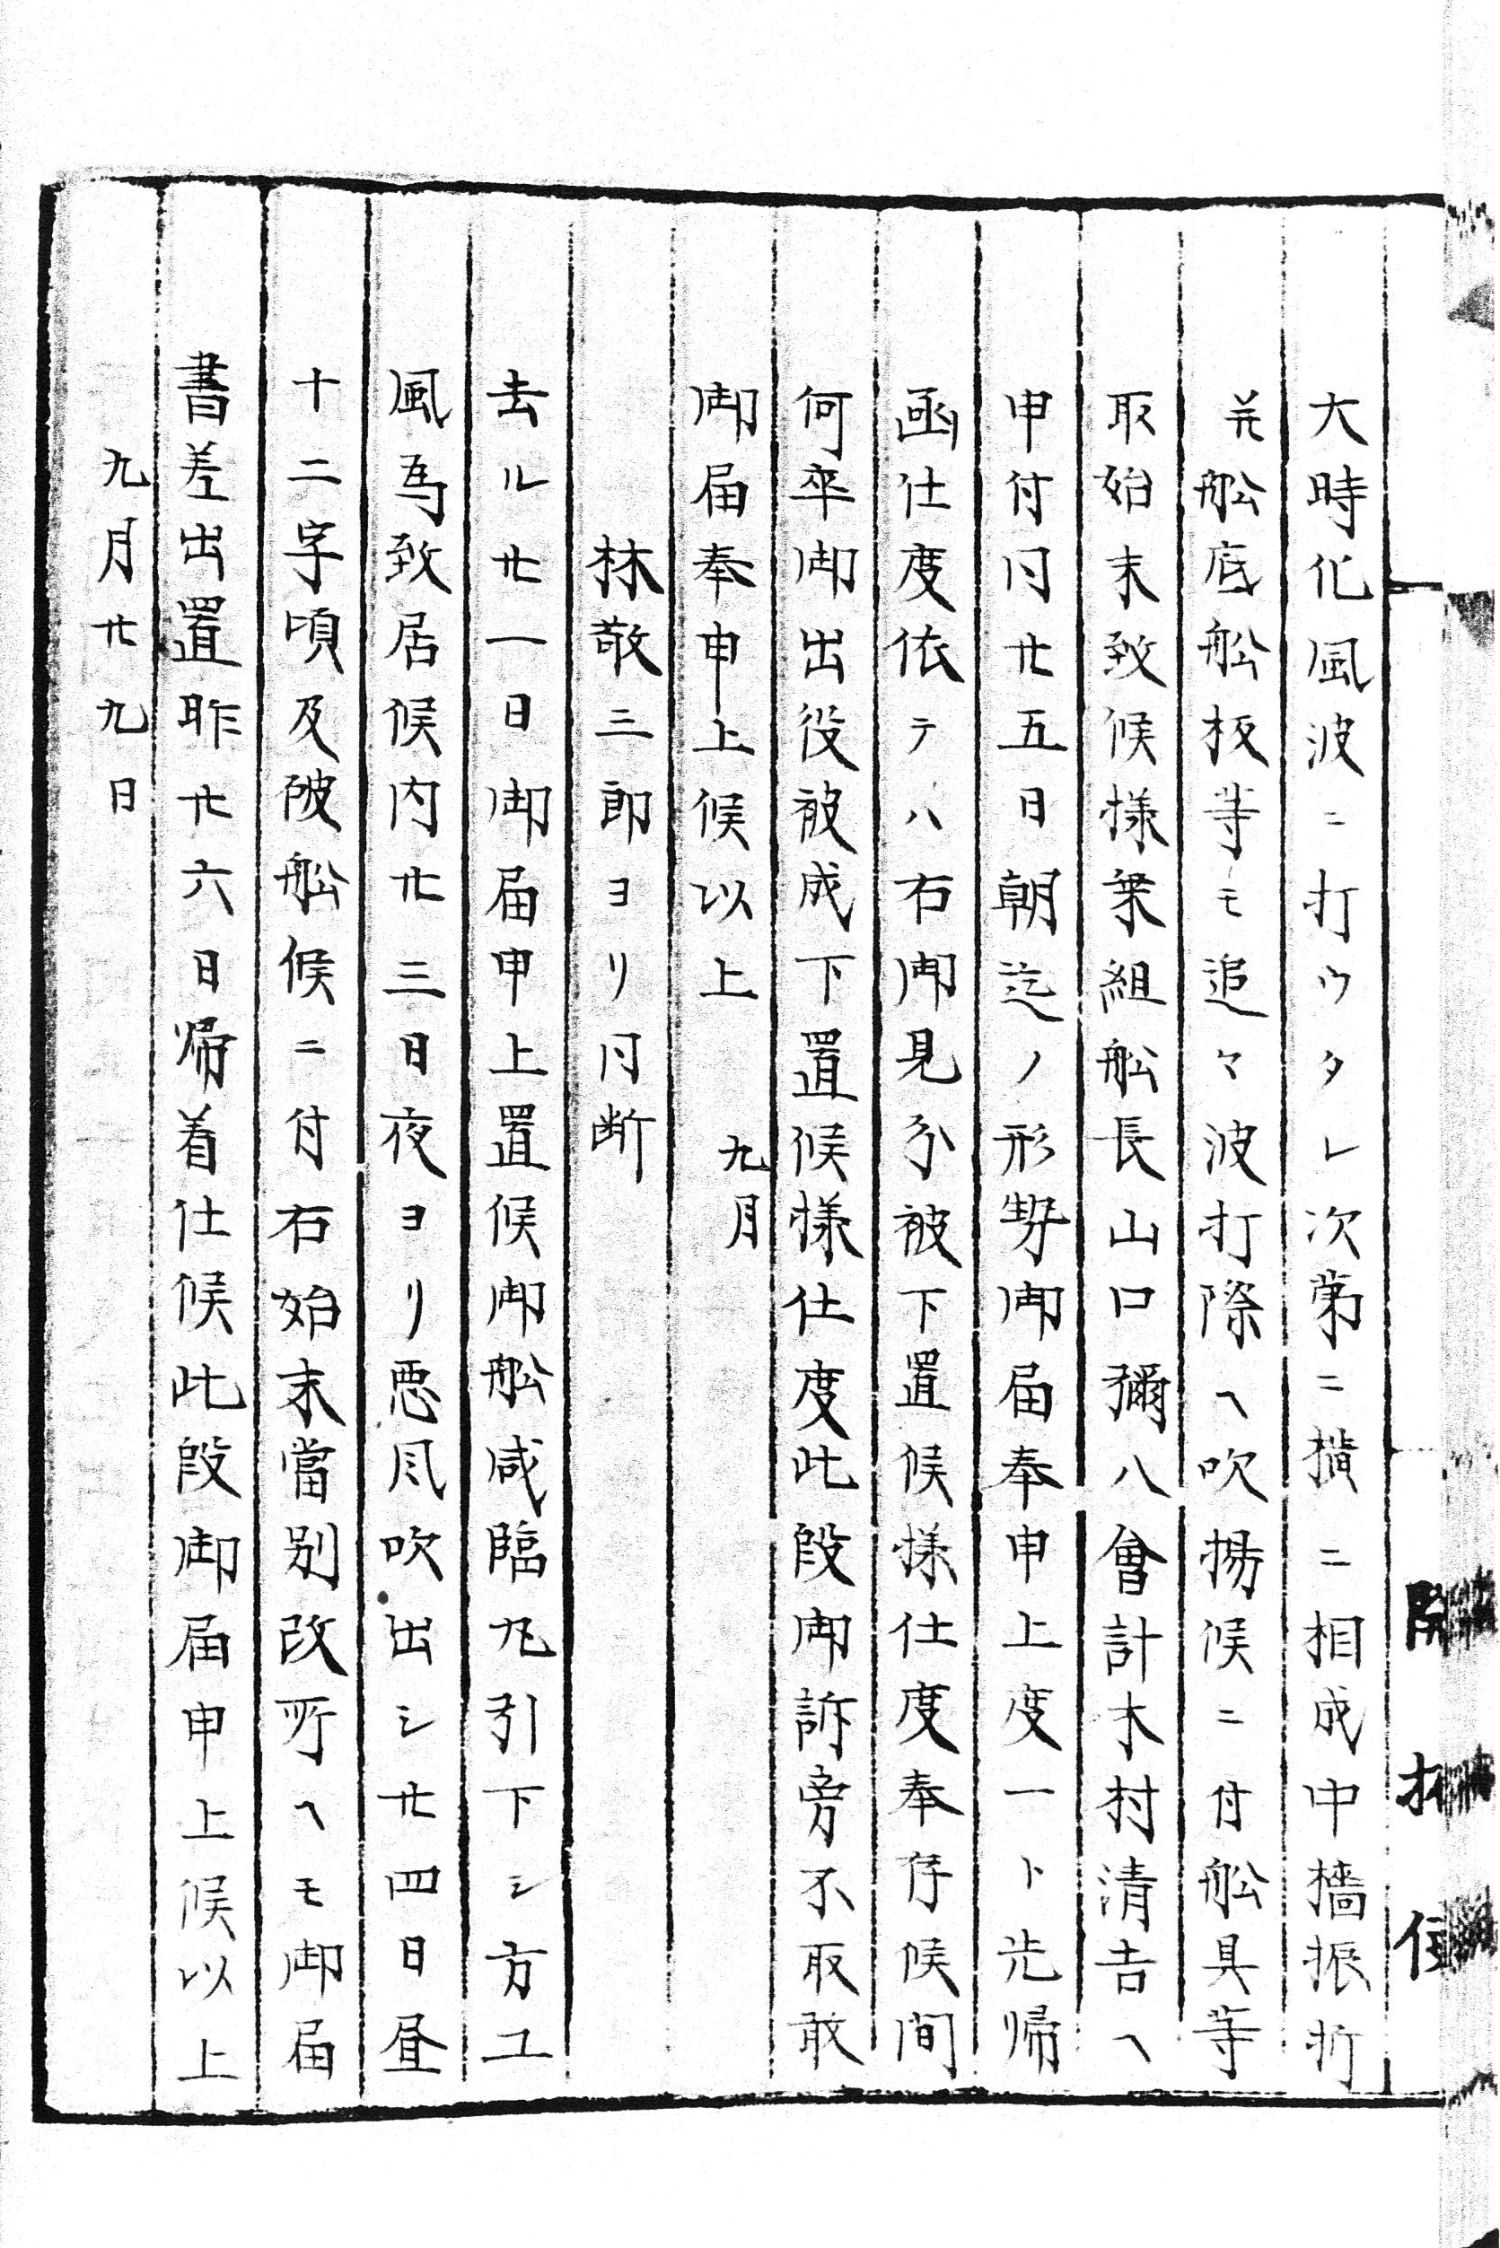 大時化風波ニ打ウタレ次第ニ横ニ相成中檣振折
并舩底舩板等モ追々波打際ヘ吹揚候ニ付舩具等
取始末致候様乗組舩長山口彌八會計木村清吉ヘ
申付同廿五日朝迄ノ形勢御届奉申上度一ト先帰
函仕度依テハ右御見分被下置候様仕度奉存候間
何卒御出役被成下置候様仕度此段御訴旁不取敢
御届奉申上候以上
九月
林敬三郎ヨリ同断
去ル廿一日御届申上置候御舩咸臨丸引下シ方工
風為致居候内廿三日夜ヨリ悪风吹出シ廿四日昼
十二字頃及破舩候ニ付右始末當別改所ヘモ御届
書差出置昨廿六日帰着仕候此段御届申上候以上
九月廿九日
開拓使